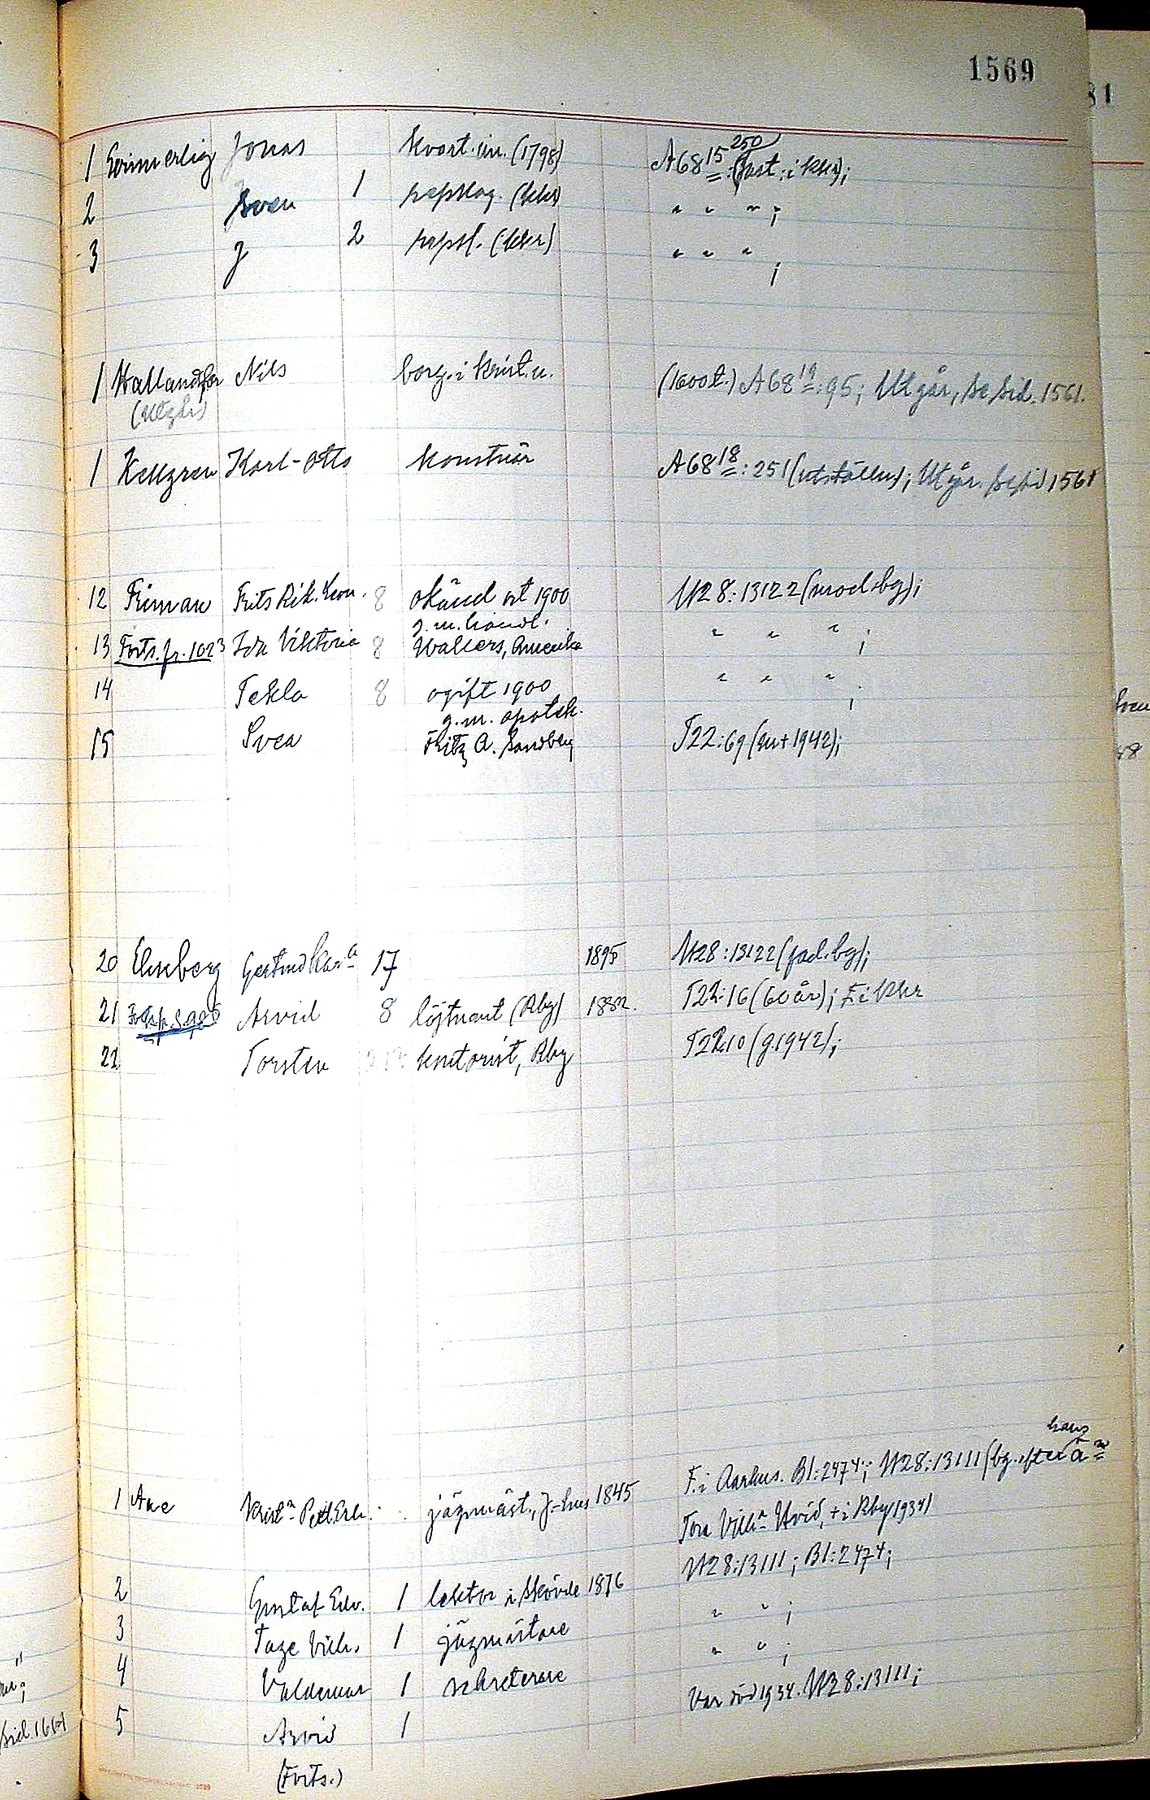 1569
81
1 Jonas kvart. (1798) A68 15 250 i kkr);
2 Sven 1 repslag. (kkr) " " " ;
3 J 2 repsl. (kkr) " " " ;
1 Nils borg. i Krist.n. (1600t.) A68 19:95; Utgår, se sid. 1561.
(Utgår)
1 Kellgren Karl-Otto konstnär A68 18:251 (utställn); Utgår. se sid 1561
12 Friman Frits Rik. 8 okänd ort 1900 U28:13122 (mod. bg);
g. m. handl.
13 Forts. fr. 1023 Ida Viktoria 8 Wallers, Amerika " " " ;
14 Tekla 8 ogift 1900 " " " ;
g. m. apotek.
15 Svea Fritz A. Sandberg T22:69 (1942);
20 Gertrud 17 1895 U28:13122 (fad. bg);
21 Arvid 8 löjtnant (Rby) 1882. T22:16 (60 år); F. i Kkr
22 Torsten kontorist, Rby T22:10 (g. 1942);
hans
F. i Aarhus. Bl:2474; U28:13111 (bg. efter
1 Ave jägmäst., 1845
Tora Vilh:a Hvid, + i Rby 1934)
U28:13111; Bl:2474;
2 Gustaf Edv. 1 lektor i Skövde 1876
3 Tage Vilh. 1 jägmästare " " ;
4 Valdemar 1 sekreterare " " ;
5 Arvid 1 Var död 1934. U28:13111;
(Forts.)
sid. 1661